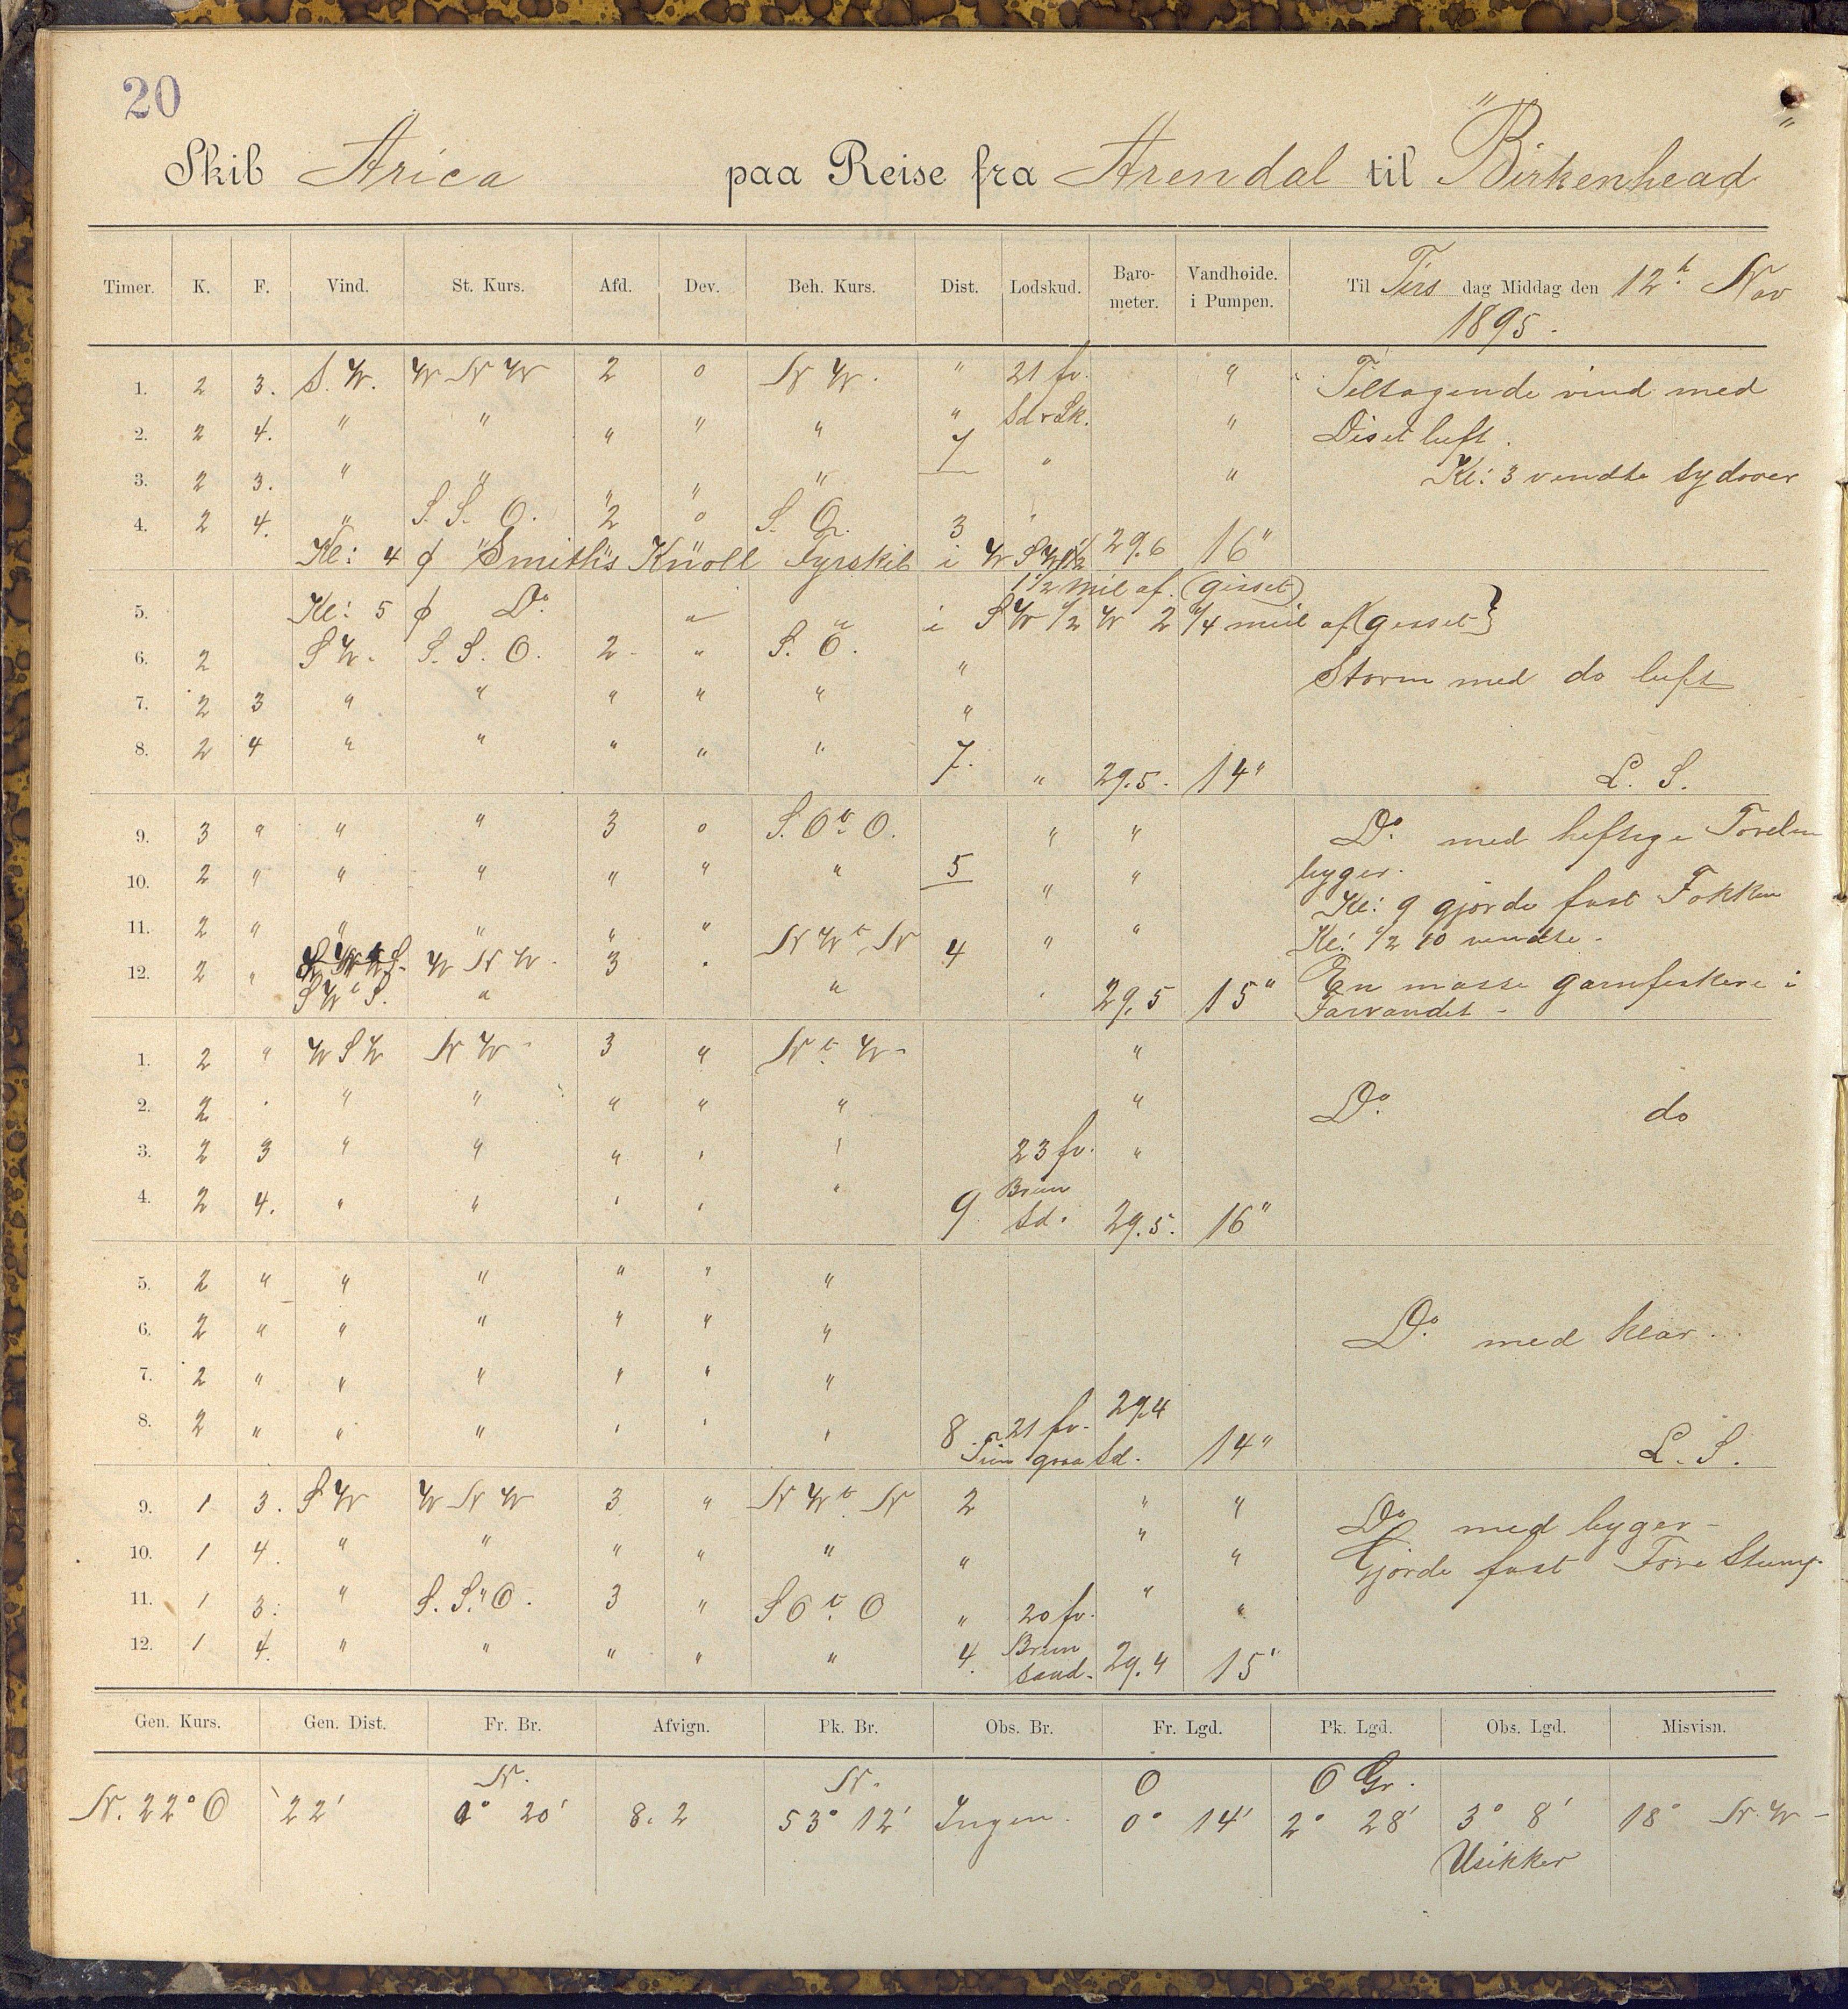 20
Skib Arica paa Reise fra Arendal til "Birkenhead"
Timer. K. F. Vind. St. Kurs. Afd. Dev. Beh. Kurs. Dist. Lodskud. Baro-meter. Vandhøide. i Pumpen. Til Tirs dag Middag den 12te Nov
1895.
1. 2 3. S. W. W N W 2 0 N W. " 21 fv. " Teltagende vind med
2. 2 4. " " " " " " Sd & Sk. " Diset luft.
3. 2 3. " " " " " 7 " " Kl: 3 vendte sydover
4. 2 4. " S. S. O. 2 0 S. O. 3 "
Kl: 4 ϕ "Smith's Knoll Fyrskib i W S W 1/2 29.6 16"
1 1/2 mil af. (gisset)
5. Kl: 5 ϕ Do " i S W 1/2 W 2 1/4 mil af (gisset)
6. 2 S W. S. S. O. 2 " S. O. " Storm med do luft
7. 2 3 " " " " " "
8. 2 4 " " " " " 7. " 29.5. 14" L. S.
9. 3 " " " 3 0 S. O t. O. " " Do. med heftige
10. 2 " " " " " " 5 " " byger.
Kl: 9 gjorde fast Fokken
11. 2 " " " " " " " Kl: 1/2 10 vendte.
12. 2 " W N W. 3 . N W t. N 4
S W t S. " " 29.5 15" En masse garnfiskere i
Farvandet -
1. 2 " W S W N W - 3 " N t. W - "
2. 2 . " " " " " " Do. do
3. 2 3 " " " " " 23 fv. "
4. 2 4. " " " " " 9 Brun Sd. 29.5. 16"
5. 2 " " " " " "
6. 2 " " " " " " Do. med klar.
7. 2 " " " " " "
8. 2 " " " " " " 8 21 fv. 29.4
graa Sd. 14" L. S.
9. 1 3. S W W N W 3 " N W t. N 2 " " Do med byger -
10. 1 4. " " " " " " " " Gjorde fast Fore Stump.
11. 1 3. " S. S. O. 3 " S O t. O " 20 fv. " "
12. 1 4. " " " " " 4. Brun Sand. 29.4 15"
Gen. Kurs. Gen. Dist. Fr. Br. Afvign. Pk. Br. Obs. Br. Fr. Lgd. Pk. Lgd. Obs. Lgd. Misvisn.
N. N. O O Gr.
N. 22° O 22' 0° 20' 8.2 53° 12' Ingen. 0° 14' 2° 28' 3° 8' 18° N. W -
Usikker